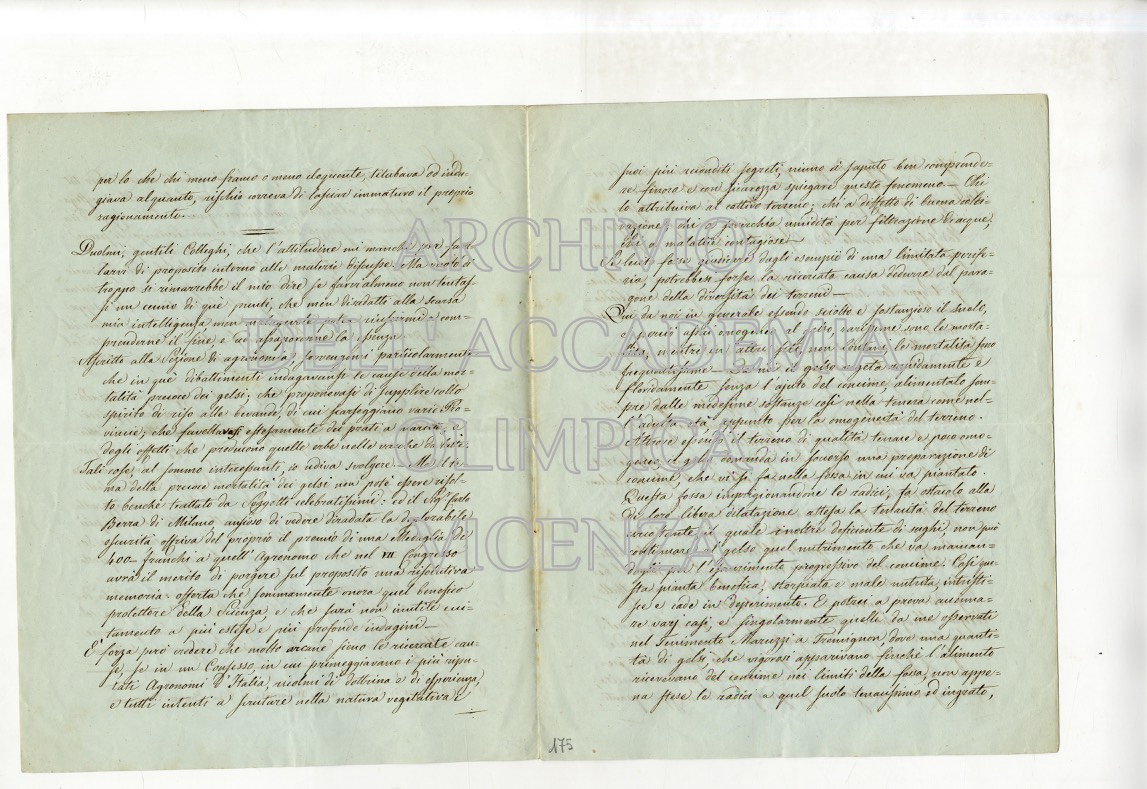 per lo che chi meno franco o meno eloquente, titubava od indu-
giava alquanto, rischio correva di lasciar immaturo il proprio
ragionamento.
Duolmi, gentili Colleghi, che l'attitudine mi manchi per far
larvi di proposito intorno alle materie discusse. Ma vuoto di
troppo si rimarrebbe il mio dire se favvi almeno non tentas-
si un cenno di que' punti, che men diradati alla scarsa
mia intelligenza non
prenderne il fine e ad assaporarne la essenza
Ascritto alla Sezione di agronomia, sovvengomi particolarmente
che in que' dibattimenti indagavansi le cause della mor-
talità precoce dei gelsi; che proponevasi di supplire collo
spirito di riso alle bevande, di cui scarseggiano varie Pro-
vincie; che favellavasi estesamente dei prati a varcita, e
degli effetti che producono quelle erbe nelle vacche da latte.
Tali cose al sommo interessanti, io udiva svolgere. Ma il te-
ma della precoce mortalità dei gelsi non potè essere risol-
to benchè trattato da Soggetti celebratissimi: ed il
Berra di Milano ansioso di vedere diradata la deplorabile
oscurità offriva del proprio il premio di una Medaglia di
400 franchi a quell'Agronomo che nel VII Congresso
avrà il merito di porgere sul proposito una risolutiva
memoria - offerta che sommamente onora quel benefico
protettore della Scienza, e che sarà non inutile ecci-
tamento a più estese e più profonde indagini.—
È forza però vedere che molto arcane sieno le ricercate cau-
se, se in un Consesso, in cui primeggiavano i più ripu-
tati Agronomi d'Italia, ricolmi di dottrina e di esperienza,
e tutti intenti a scrutare nella natura vegetativa i
suoi più reconditi segreti, niuno à saputo ben comprende-
re finora e con sicurezza spiegare questo fenomeno.— Chi
lo attribuiva al cattivo terreno; chi a difetto di buona colti-
vazione; chi a soverchia umidità per filtrazione d'acque,
chi a malattie contagiose—
Se lecito fosse giudicare dagli esempii di una limitata perife-
ria, potrebbesi forse la ricercata causa dedurre dal para-
gone della diversità dei terreni—
Qui da noi in generale essendo sciolto e sostanzioso il suolo,
e perciò assai omogeneo al gelso, rarissime sono le morta-
lità, mentre in altri siti, non lontani, le mortalità sono
frequentissime — Da noi il gelso vegeta rapidamente e
floridamente senza l'ajuto del concime, alimentato sem-
pre dalle medesime sostanze così nella tenera come nel-
l'adulta età, appunto per la omogeneità del terreno.
Altrove essendo il terreno di qualità tenace e poco omo-
geneo, il gelso comanda in soccorso una preparazione di
concime, che vi si fa nella fossa in cui va piantato.
Questa fossa imprigionandone le radici, fa ostacolo alla
di loro libera dilatazione attesa la tenacità del terreno
circostante, il quale inoltre deficiente di sughi, non può
continuare al gelso quel nutrimento che va mancan-
dogli per l'esaurimento progressivo del concime. Così que-
sta pianta benefica, storpiata e male nutrita, intristi-
sce e cade in deperimento. E potrei a prova accenna-
re varj casi, e singolarmente quelli da me osservati
nel Tenimento Maruzzi a Tremignon dove una quanti-
tà di gelsi, che vigorosi apparivano finchè l'alimento
ricevevano del concime nei limiti della fossa, non appe-
na stese le radici a quel suolo tenacissimo ed ingrato,
175
ARCHIVIO
DELL'ACCADEMIA
OLIMPICA
VICENZA